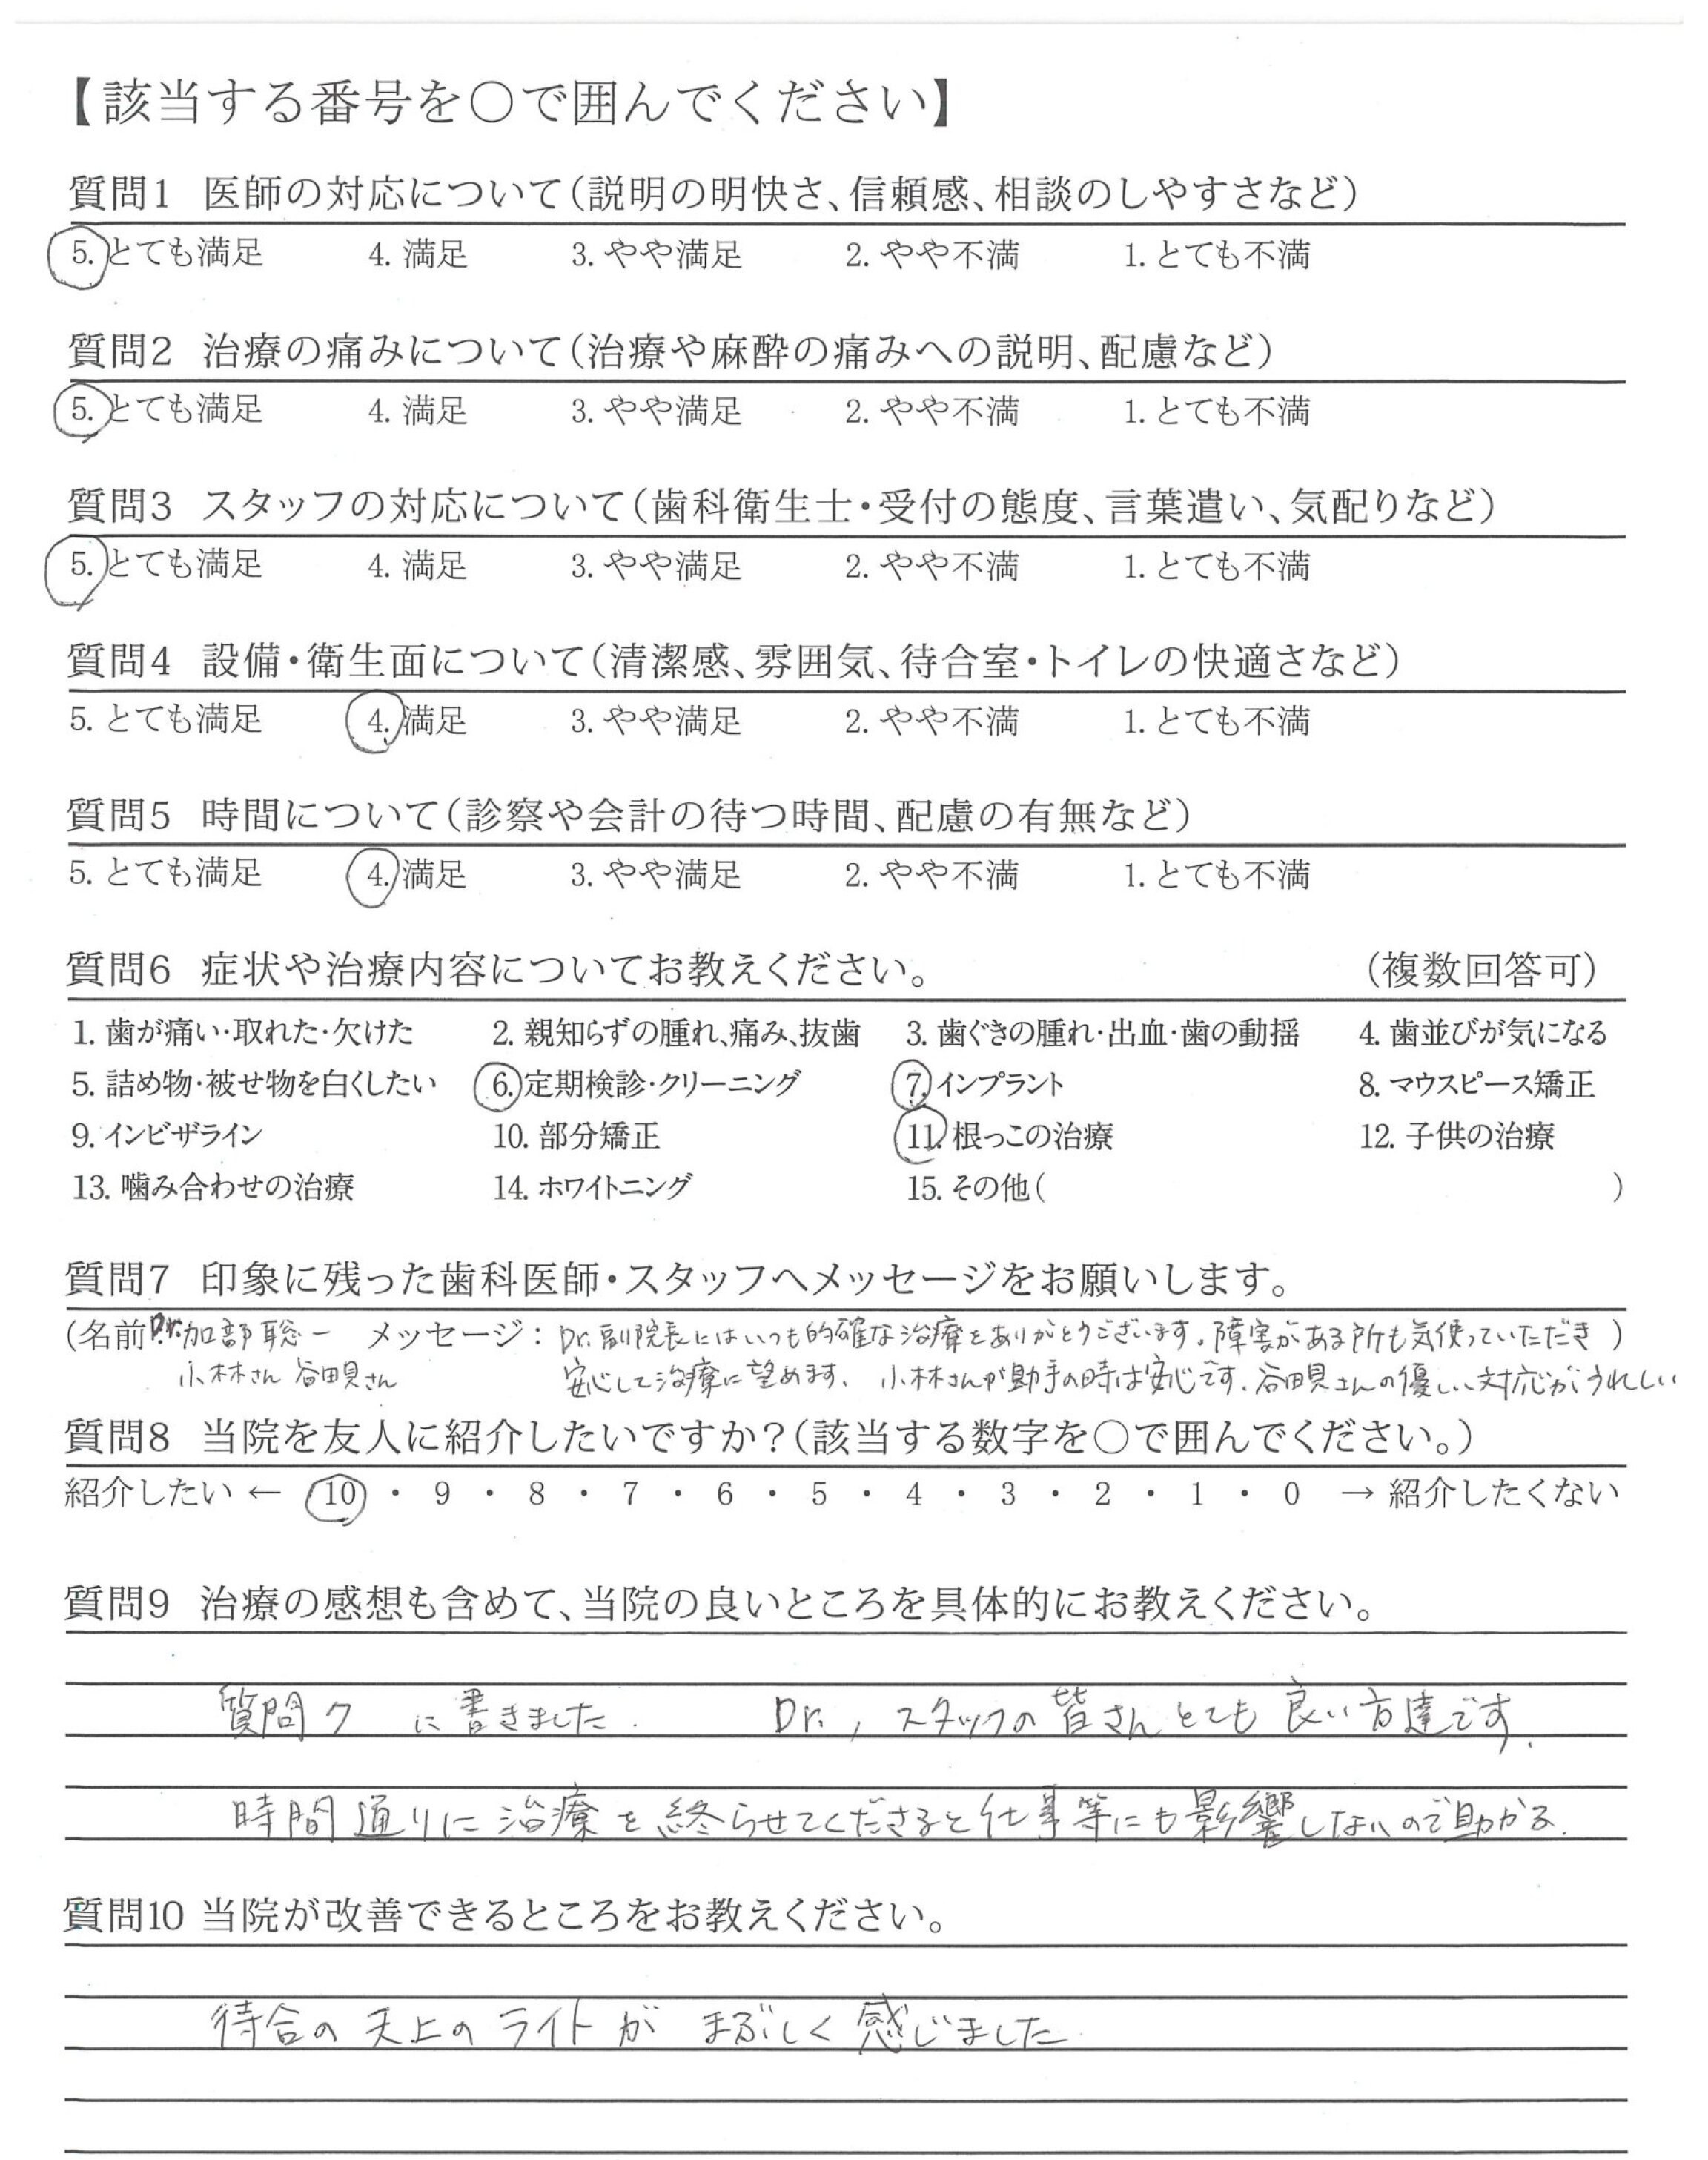 【該当する番号を○で囲んでください】
質問1 医師の対応について(説明の明快さ、信頼感、相談のしやすさなど)
5. とても満足 4. 満足 3. やや満足 2. やや不満 1. とても不満
質問2 治療の痛みについて(治療や麻酔の痛みへの説明、配慮など)
5. とても満足 4. 満足 3. やや満足 2. やや不満 1. とても不満
質問3 スタッフの対応について(歯科衛生士・受付の態度、言葉遣い、気配りなど)
5. とても満足 4. 満足 3. やや満足 2. やや不満 1. とても不満
質問4 設備・衛生面について(清潔感、雰囲気、待合室・トイレの快適さなど)
5. とても満足 4. 満足 3. やや満足 2. やや不満 1. とても不満
質問5 時間について(診察や会計の待つ時間、配慮の有無など)
5. とても満足 4. 満足 3. やや満足 2. やや不満 1. とても不満
質問6 症状や治療内容についてお教えください。 (複数回答可)
1. 歯が痛い・取れた・欠けた 2. 親知らずの腫れ、痛み、抜歯 3. 歯ぐきの腫れ・出血・歯の動揺 4. 歯並びが気になる
5. 詰め物・被せ物を白くしたい 6. 定期検診・クリーニング 7. インプラント 8. マウスピース矯正
9. インビザライン 10. 部分矯正 11. 根っこの治療 12. 子供の治療
13. 噛み合わせの治療 14. ホワイトニング 15. その他( )
質問7 印象に残った歯科医師・スタッフへメッセージをお願いします。
(名前 Dr. 加部聡一 メッセージ: Dr.副院長にはいつも的確な治療をありがとうございます。障害がある所も気使っていただき )
小林さん 谷田貝さん 安心して治療に望めます、 小林さんが助手の時は安心です、谷田貝さんの優しい対応がうれしい
質問8 当院を友人に紹介したいですか?(該当する数字を○で囲んでください。)
紹介したい ← 10 ・ 9 ・ 8 ・ 7 ・ 6 ・ 5 ・ 4 ・ 3 ・ 2 ・ 1 ・ 0 → 紹介したくない
質問9 治療の感想も含めて、当院の良いところを具体的にお教えください。
質問7 に書きました. Dr., スタッフの皆さんとても良い方達です.
時間通りに治療を終らせてくださると仕事等にも影響しないので助かる.
質問10 当院が改善できるところをお教えください。
待合の天上のライトが まぶしく感じました